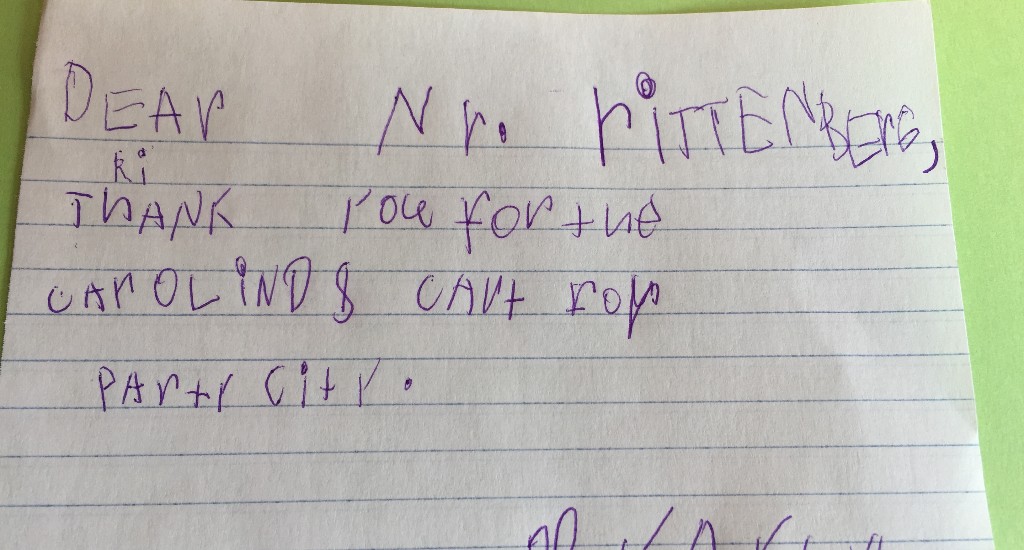 DEAr Nr. riTTENBErG,
ki
THANK you for the
CArOLiND8 CArt for
PArty City.